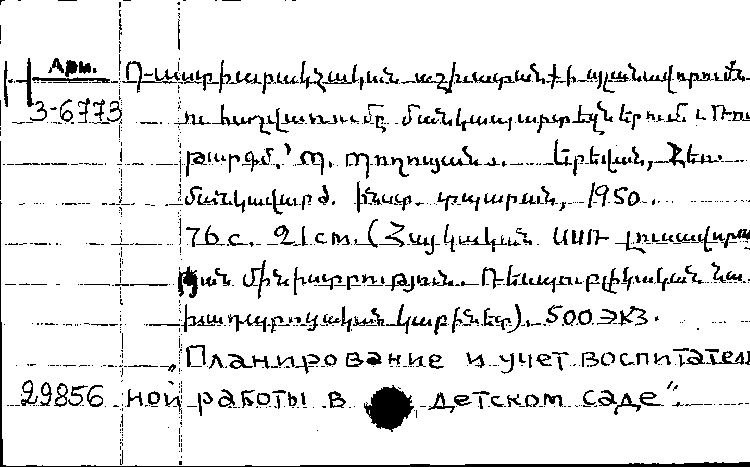 Арм.
3-6773
Դաստիարակչական աշխատանքի պլանավորումն
ու հաշվառումը մանկապարտեզներում: Ռու
թարգմ.՝ Երևան, Հեռ.
մանկավարժ. ինստ. տպարան, 1950.
76 с. 21 cm. (Հայկական ՍՍՌ լուսավորու
թյան մինիստրություն. Ռեսպուբլիկական նա
խադպրոցական կաբինետ). 500 экз.
„Планирование и учет воспитатель
29856 ной работы в детском саде".